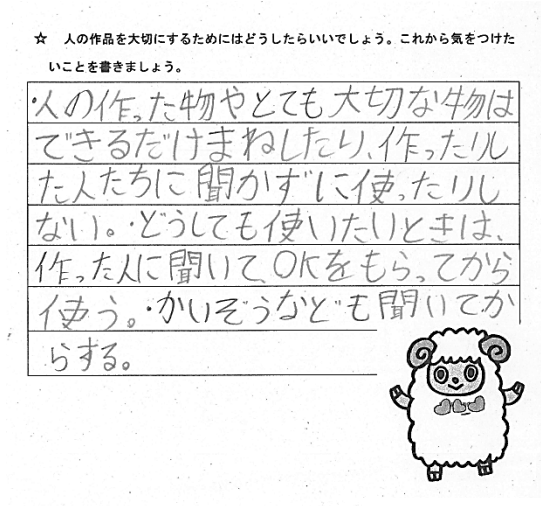 ☆ 人の作品を大切にするためにはどうしたらいいでしょう。これから気をつけた
いことを書きましょう。
・人の作った物やとても大切な物は
できるだけまねしたり、作ったりし
た人たちに聞かずに使ったりし
ない。・どうしても使いたいときは、
作った人に聞いて、OKをもらってから
使う。・かいぞうなども聞いてか
らする。